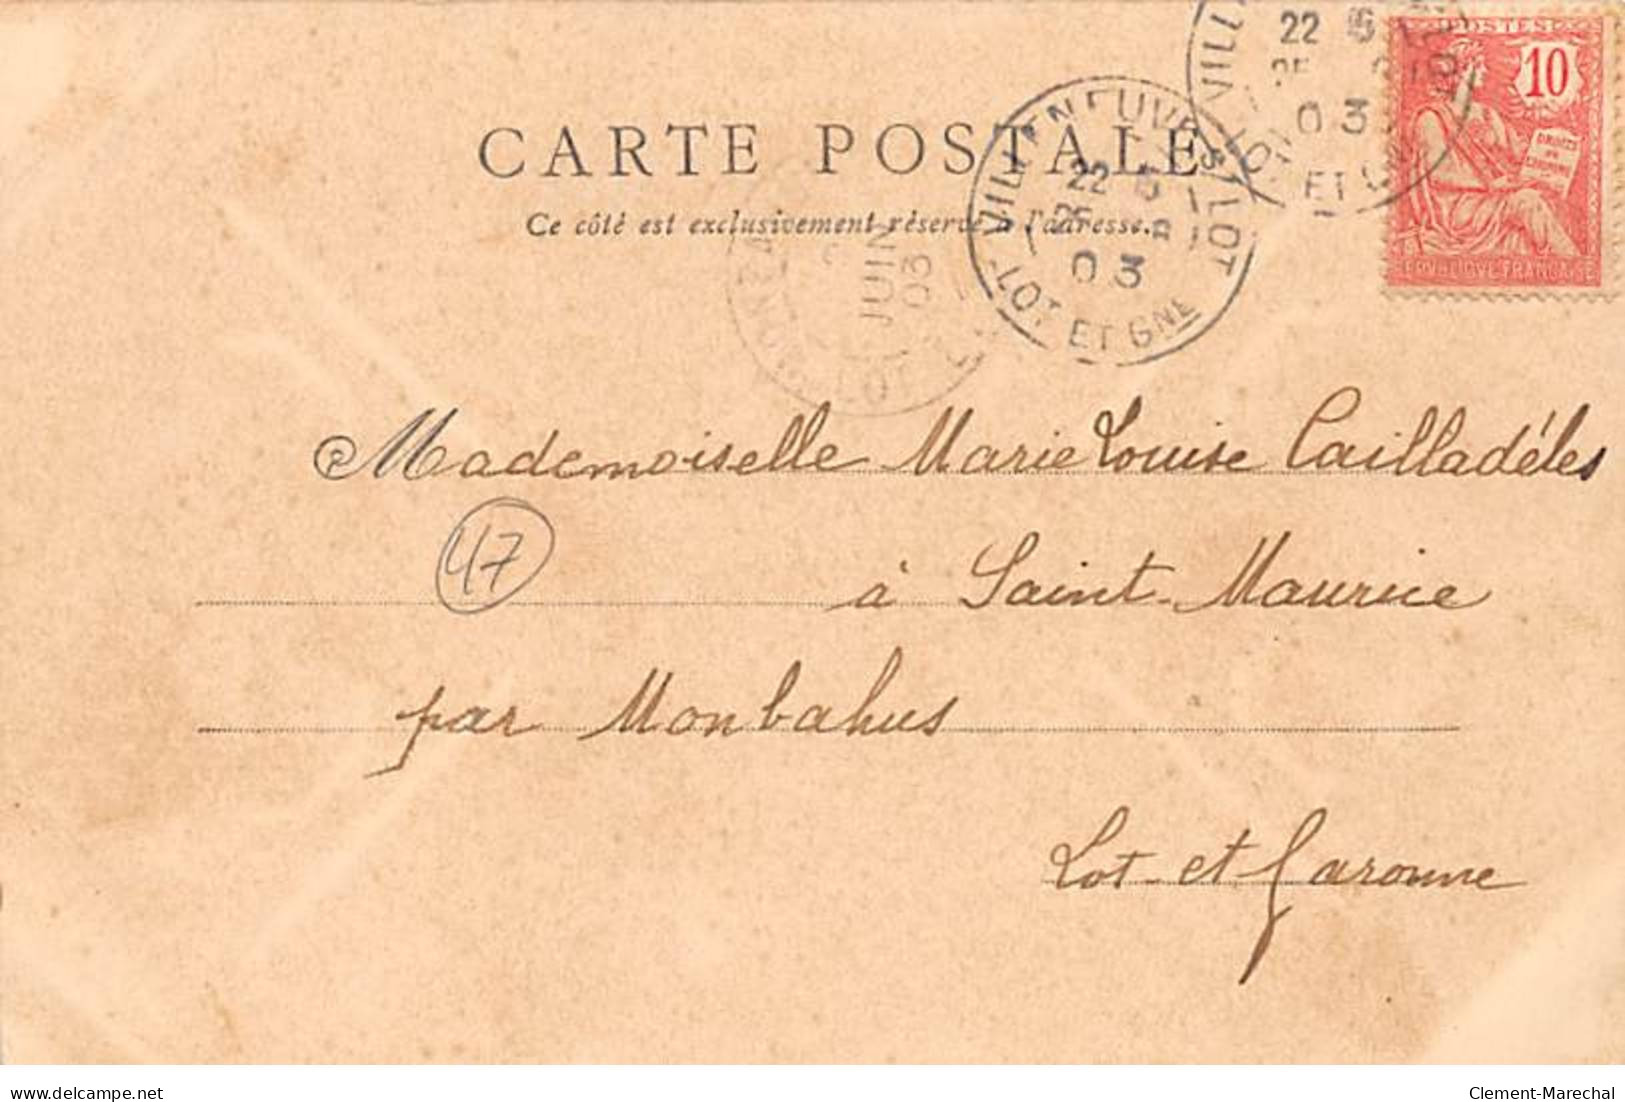 POSTES
10
DROITS DE L'HOMME
REPUBLIQUE FRANÇAISE
22
03
ET
CARTE POSTALE
Ce côté est exclusivement réservé à l'adresse.
VILLENEUVE S/ LOT
22
03
LOT ET GNE
JUIN
03
LOT
Mademoiselle Marie Louise Cailladéles
47
à Saint-Maurice
par Monbahus
Lot-et-Garonne
delcampe.net
Clement-Marechal